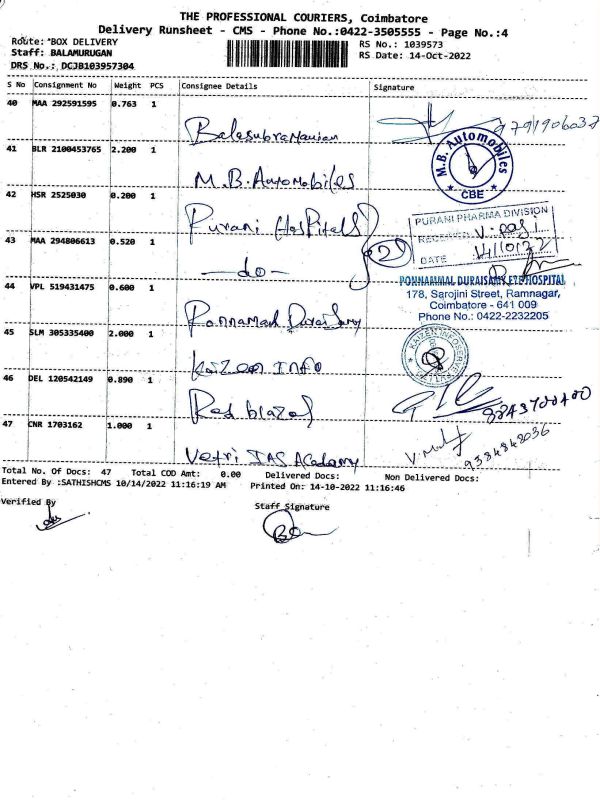 THE PROFESSIONAL COURIERS, Coimbatore
Delivery Runsheet - CMS - Phone No.:0422-3505555 - Page No.:4
Route: *BOX DELIVERY
Staff: BALAMURUGAN
DRS No.: DCJB103957304
RS No.: 1039573
RS Date: 14-Oct-2022
S No Consignment No Weight PCS Consignee Details Signature
40 MAA 292591595 0.763 1 Balasubramanian
41 BLR 2100453765 2.200 1 M.B. Automobiles
M.B. Automobiles
CBE
42 HSR 2525030 0.200 1 Purani Hospitals
PURANI PHARMA DIVISION
RECEIVED
DATE 14/10/22
43 MAA 294806613 0.520 1 -do-
2
44 VPL 519431475 0.600 1 Ponnamal Duraisamy
PONNAMMAL DURAISAMY EYE HOSPITAL
178, Sarojini Street, Ramnagar,
Coimbatore - 641 009
Phone No.: 0422-2232205
45 SLM 305335400 2.000 1 Kaizen Info
46 DEL 120542149 0.890 1 Red blazes
47 CNR 1703162 1.000 1 Vetri IAS Academy
9384848036
Total No. Of Docs: 47 Total COD Amt: 0.00 Delivered Docs: Non Delivered Docs:
Entered By :SATHISHCMS 10/14/2022 11:16:19 AM Printed On: 14-10-2022 11:16:46
Verified By
Staff Signature